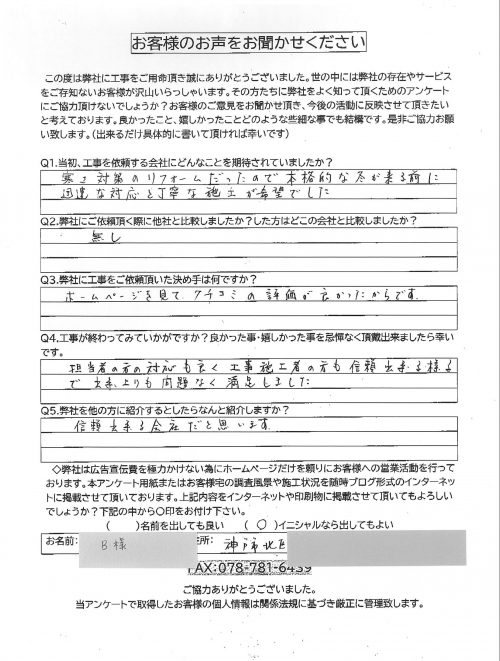 お客様のお声をお聞かせください
この度は弊社に工事をご用命頂き誠にありがとうございました。世の中には弊社の存在やサービス
をご存知ないお客様が沢山いらっしゃいます。その方たちに弊社をよく知って頂くためのアンケート
にご協力頂けないでしょうか？お客様のご意見をお聞かせ頂き、今後の活動に反映させて頂きたい
と考えております。良かったこと、嬉しかったことどのような些細な事でも結構です。是非ご協力お願
い致します。（出来るだけ具体的に書いて頂ければ幸いです）
Q1.当初、工事を依頼する会社にどんなことを期待されていましたか？
寒さ対策のリフォームだったので本格的な冬が来る前に
迅速な対応と丁寧な施工が希望でした
Q2.弊社にご依頼頂く際に他社と比較しましたか？した方はどこの会社と比較しましたか？
無し
Q3.弊社に工事をご依頼頂いた決め手は何ですか？
ホームページを見て、クチコミの評価が良かったからです。
Q4.工事が終わってみていかがですか？良かった事・嬉しかった事を忌憚なく頂戴出来ましたら幸い
です。
担当者の方の対応も良く工事施工者の方も信頼出来る様子
で出来上りも問題なく満足しました
Q5.弊社を他の方に紹介するとしたらなんと紹介しますか？
信頼出来る会社だと思います。
◇弊社は広告宣伝費を極力かけない為にホームページだけを頼りにお客様への営業活動を行って
おります。本アンケート用紙またはお客様宅の調査風景や施工状況を随時ブログ形式のインターネッ
トに掲載させて頂いております。上記内容をインターネットや印刷物に掲載させて頂いてもよろしい
でしょうか？下記の中から○印をお付け下さい。
（　）名前を出しても良い　（○）イニシャルなら出してもよい
お名前: B様 住所: 神戸市北区
FAX:078-781-6439
ご協力ありがとうございました。
当アンケートで取得したお客様の個人情報は関係法規に基づき厳正に管理致します。